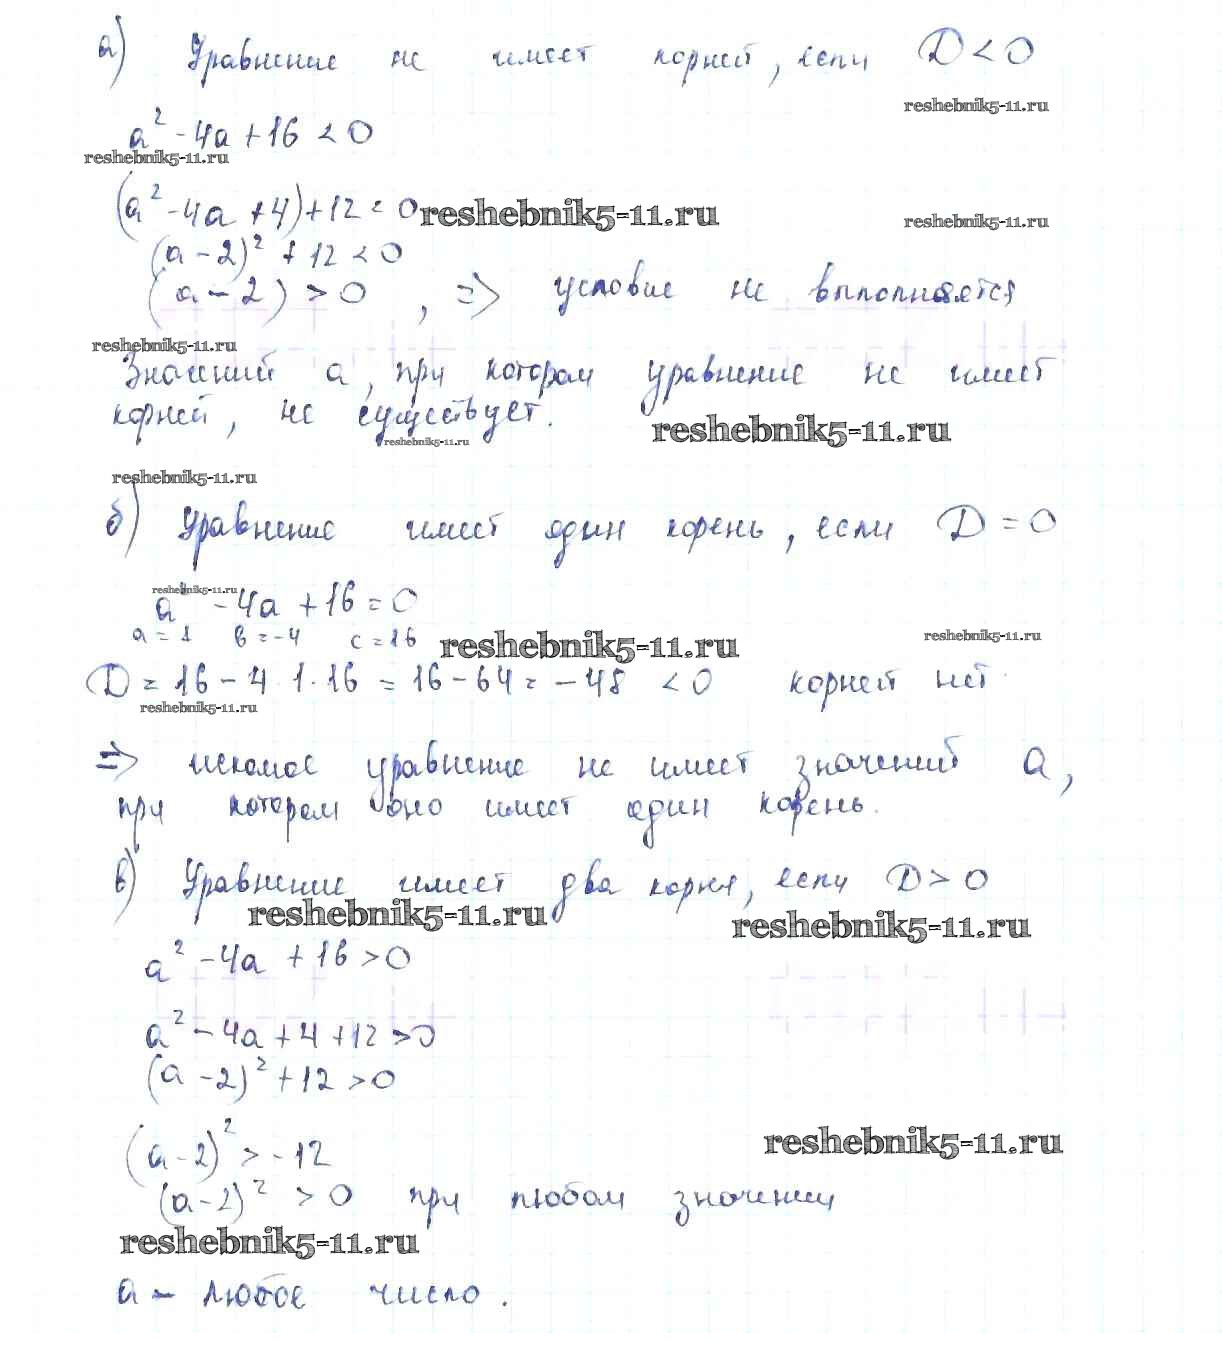 а) Уравнение не имеет корней, если D < 0
reshebnik5-11.ru
a² - 4a + 16 < 0
reshebnik5-11.ru
(a² - 4a + 4) + 12 < 0 reshebnik5-11.ru
reshebnik5-11.ru
(a - 2)² + 12 < 0
(a - 2) > 0 , => условие не выполняется
reshebnik5-11.ru
Значений а, при котором уравнение не имеет
корней, не существует.
reshebnik5-11.ru
reshebnik5-11.ru
reshebnik5-11.ru
б) Уравнение имеет один корень, если D = 0
reshebnik5-11.ru
a² - 4a + 16 = 0
a = 1 в = -4 c = 16
reshebnik5-11.ru
reshebnik5-11.ru
D = 16 - 4·1·16 = 16 - 64 = -48 < 0 корней нет
reshebnik5-11.ru
=> искомое уравнение не имеет значений а,
при котором оно имеет один корень.
в) Уравнение имеет два корня, если D > 0
reshebnik5-11.ru
reshebnik5-11.ru
a² - 4a + 16 > 0
a² - 4a + 4 + 12 > 0
(a - 2)² + 12 > 0
reshebnik5-11.ru
(a - 2)² > -12
(a - 2)² > 0 при любом значении
reshebnik5-11.ru
а - любое число.